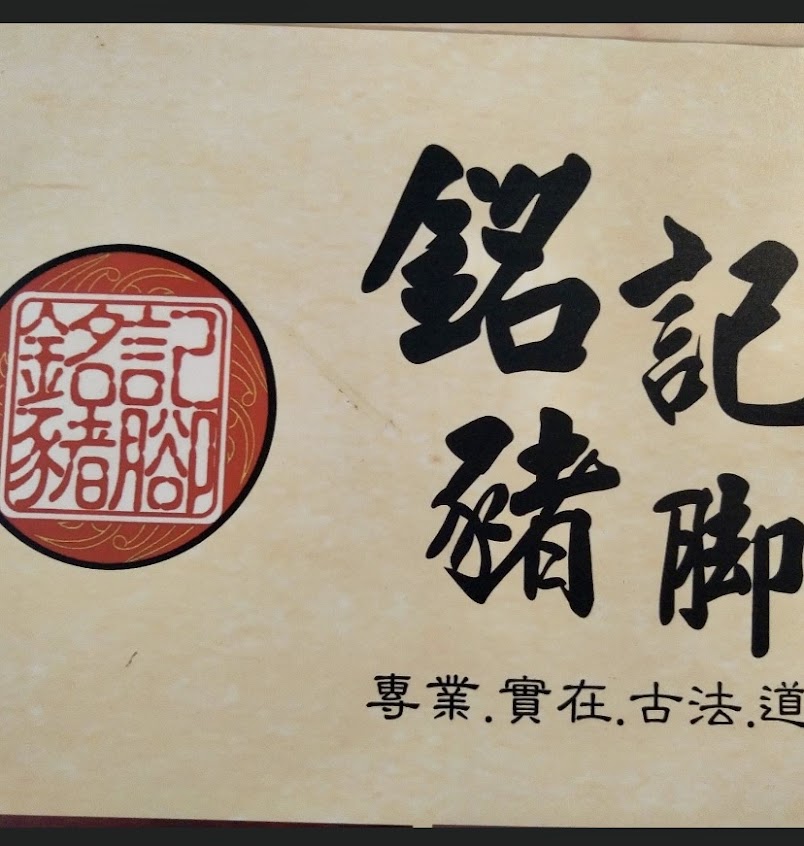 銘記
豬腳
銘記
豬腳
專業.實在.古法.道